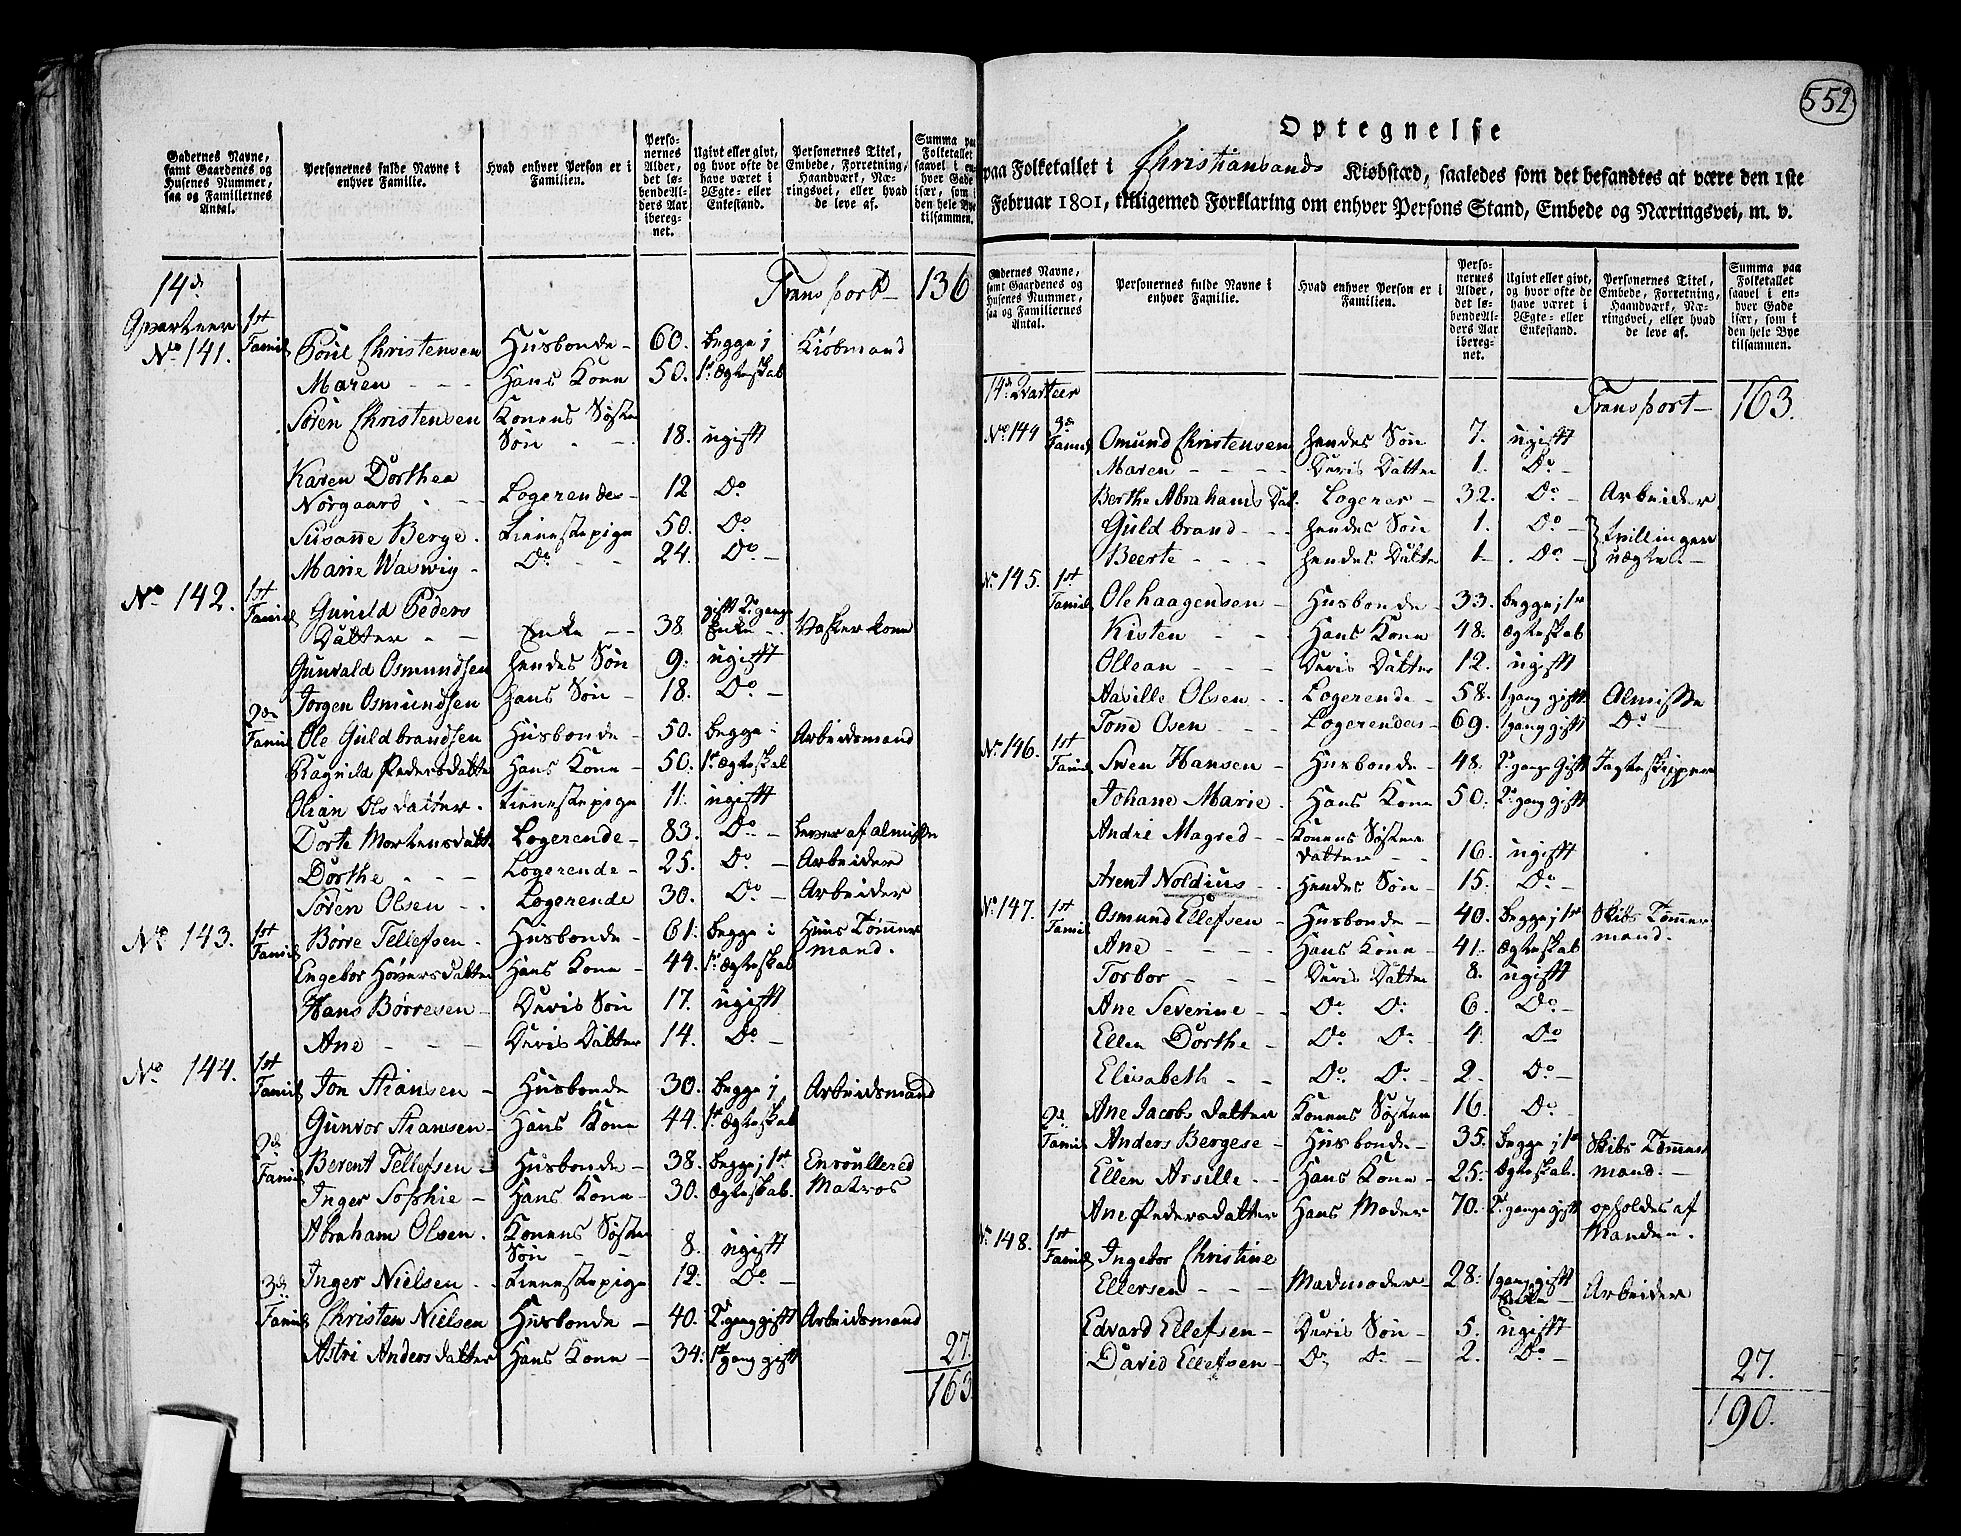 Gadernes Navne, samt Gaardenes og Husenes Nummer, saa og Familiernes Antal.
Personernes fulde Navne i enhver Familie.
Hvad enhver Person er i Familien.
Personernes Alder, det løbende Alders Aar iberegnet.
Ugivt eller givt, og hvor ofte de have været i Ægte- eller Enkestand.
Personernes Titel, Embede, Forretning, Haandværk, Næringsvei, eller hvad de leve af.
Summa paa Folketallet saavel i enhver Gade især, som i den hele Bye tilsammen.
14de Qvarteer Transport 136
No 141. 1st Famil Poul Christensen Husbonde 60. begge j Kiöbmand
Maren Hans Kone 50. 1st Ægteskab
Sören Christensen Konens Söster Sön 18. ugift
Karen Dorthea Nörgaard Logerendes 12 Do
Susanne Berge Tienestepige 50. Do
Marie Waswig Do 24. Do
No 142. 1st Famil Gunild Peders Datter Enke 38 gift 2de gange Enke Vasker kone
Gunvald Osmundsen hendes Sön 9. ugift
Jörgen Osmundsen hans Sön 18. Do
2den Famil Ole Guldbrandsen Husbonde 50. begge i Arbeidsmand
Ragnild Pedersdatter Hans Kone 50. 1st Ægteskab
Olian Olsdatter Tienestepige 11. ugift
Dorte Mortensdatt. Logerende 83. Do Lever af almisse
Dorthe Logerende 25. Do Arbeider
Sören Olsen Logerende 30. Do Arbeider
No 143. 1st Famil Börre Tellefsen Husbonde 61. begge i Huus Tömmermand.
Engebor Höversdatter Hans Kone 44. 1st Ægteskab
Hans Börresen Deris Sön 17. ugift
Ane Deris Datter 14. Do
No 144. 1st Famil Jon Hansen Husbonde 30. begge j Arbeidsmand
Gunvor Hansen Hans Kone 44. 1st Ægteskab
2de Famil Berent Tellefsen Husbonde 38. begge j 1st Enroullered
Inger Sophie Hans Kone 30. Ægteskab. Matros
Abraham Olsen Konens Söster Sön 8. ugift
Inger Nielsen Tienestepige 12. Do
3de Famil Christen Nielsen Husbonde 40. 2de gang gift Arbeidsmand
Astri Andersdatter Hans Kone 34. 1st gang gift 27.
163
552
Optegnelse
paa Folketallet i Christiansands Kiøbstæd, saaledes som det befandtes at være den 1ste
Februar 1801, tilligemed Forklaring om enhver Persons Stand, Embede og Næringsvei, m. v.
Gadernes Navne, samt Gaardenes og Husenes Nummer, saa og Familiernes Antal.
Personernes fulde Navne i enhver Familie.
Hvad enhver Person er i Familien.
Personernes Alder, det løbende Alders Aar iberegnet.
Ugivt eller givt, og hvor ofte de have været i Ægte- eller Enkestand.
Personernes Titel, Embede, Forretning, Haandværk, Næringsvei, eller hvad de leve af.
Summa paa Folketallet saavel i enhver Gade især, som i den hele Bye tilsammen.
14de Qvarteer Transport 163.
No 144 Famil Omund Christensen hendes Sön 7. ugift
Maren Deris Datter 1. Do
Berthe Abrahams Dat. Logerer 32. Do Arbeider
Guldbrand hendes Sön 1. Do tvillinger
Beerte hendes Datter 1. Do uægte
No 145. 1st Famil Ole Haagensen Husbonde 33. begge j 1st
Kisten Hans Kone 48. Ægteskab
Ollean Deris Datter 12. ugift
Aaville Olsen Logerende 58. 1 gang gift Almisse
Tone Osen Logerendes 69. 1 gang gift Do
No 146. 1st Famil Swen Hansen Husbonde 48. 2de gange Gift Jagteskipper
Johane Marie Hans Kone 50. 2de gang gift
Andre Magred Konens Sösters datter 16. ugift
Arent Noldius Hendes Sön 15. Do
No 147. 1st Famil Osmund Ellefsen Husbonde 40. begge j 1st Skibs Tömmermand.
Ane Hans Kone 41. Ægteskab
Torbor Deris Datter 8. ugift
Ane Severine Do Do 6. Do
Ellen Dorthe Do Do 4. Do
Elisabeth Do Do 2. Do
Ane Jacobs datter Konens Söster 16. Do
2de Famil Anders Bergese Husbonde 35. begge j 1st Skibs Tömmermand.
Ellen Arsille Hans Kone 25. Ægteskab.
Ane Pedersdatter Hans Moder 70. 2de gange gift opholdes af Manden.
No 148. 1st Famil Ingebor Christine Ellersen Madmoder 28. 1 gang gift Enke Arbeider
Edvard Ellefsen Deris Sön 5. ugift
David Ellefsen Do Do 2. Do 27.
190.